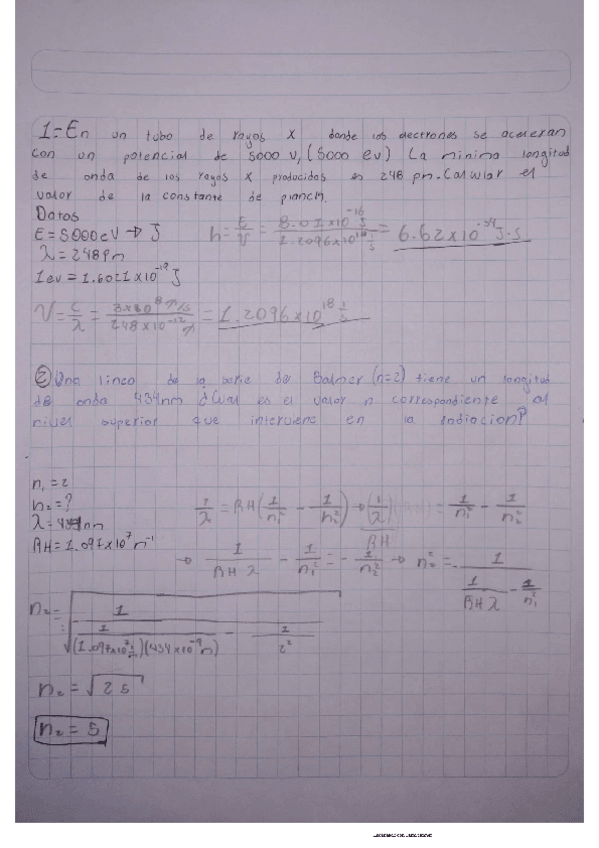 1= En un tubo de rayos X donde los electrones se aceleran
con un potencial de 5000 v, (5000 ev) La minima longitud
de onda de los rayos X producidos es 248 pm. Calcular el
valor de la constante de planck.
Datos
E = 5000 eV → J
h = E/V = 8.01x10^-16 J / 1.2096x10^18 1/s = 6.62x10^-34 J·s
λ = 248pm
1ev = 1.6021x10^-19 J
V = c/λ = 3x10^8 m/s / 248x10^-12 m = 1.2096x10^18 1/s
② Una linea de la serie de Balmer (n=2) tiene un longitud
de onda 434nm ¿Cual es el valor n correspondiente al
nivel superior que interviene en la
n₁ = 2
n₂ = ?
λ = 434nm
RH = 1.097x10^7 m^-1
1/λ = RH(1/n₁² - 1/n₂²) → (1/λ)/RH = 1/n₁² - 1/n₂²
→ 1/RHλ - 1/n₁² = - 1/n₂² → n₂² = 1/(1/RHλ - 1/n₁²)
n₂ = √1/(1/(1.097x10^7 1/m)(434x10^-9 m) - 1/2²)
n₂ = √25
n₂ = 5